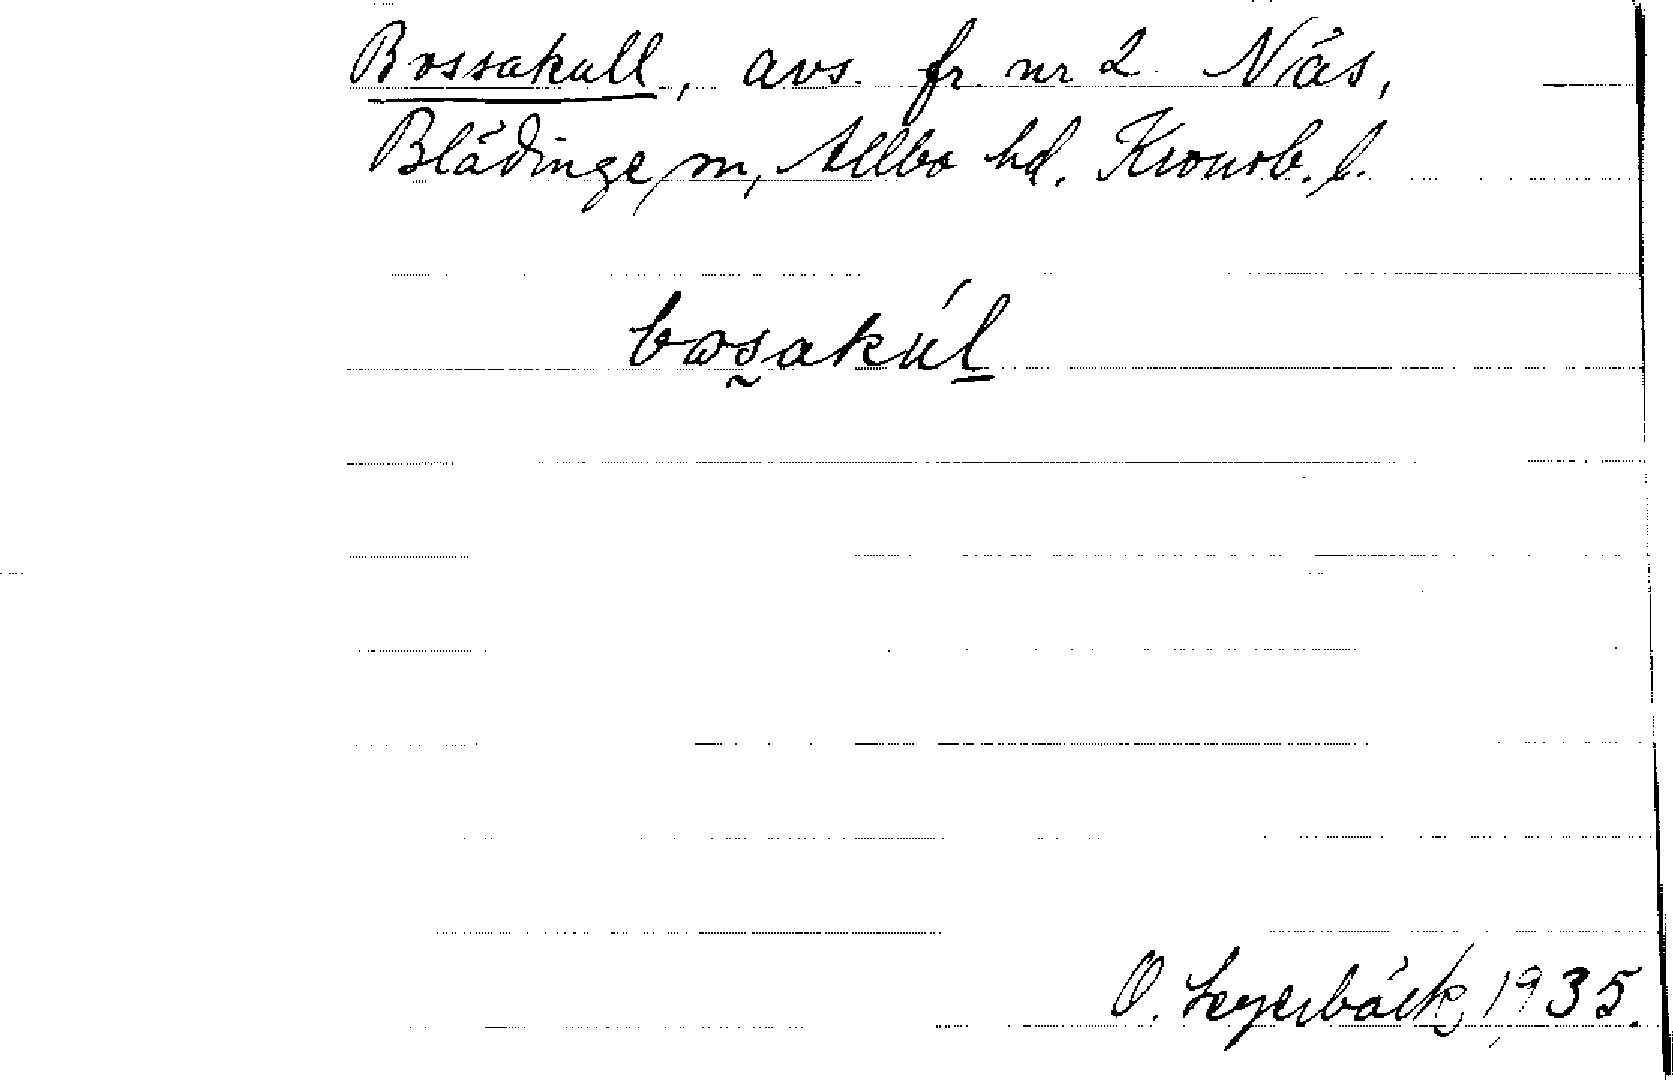 Bossakull, avs. fr. nr 2 Näs,
Blädinge sn, Allbo hd. Kronob. l.
bosakúl
O. Legerbäck, 1935.